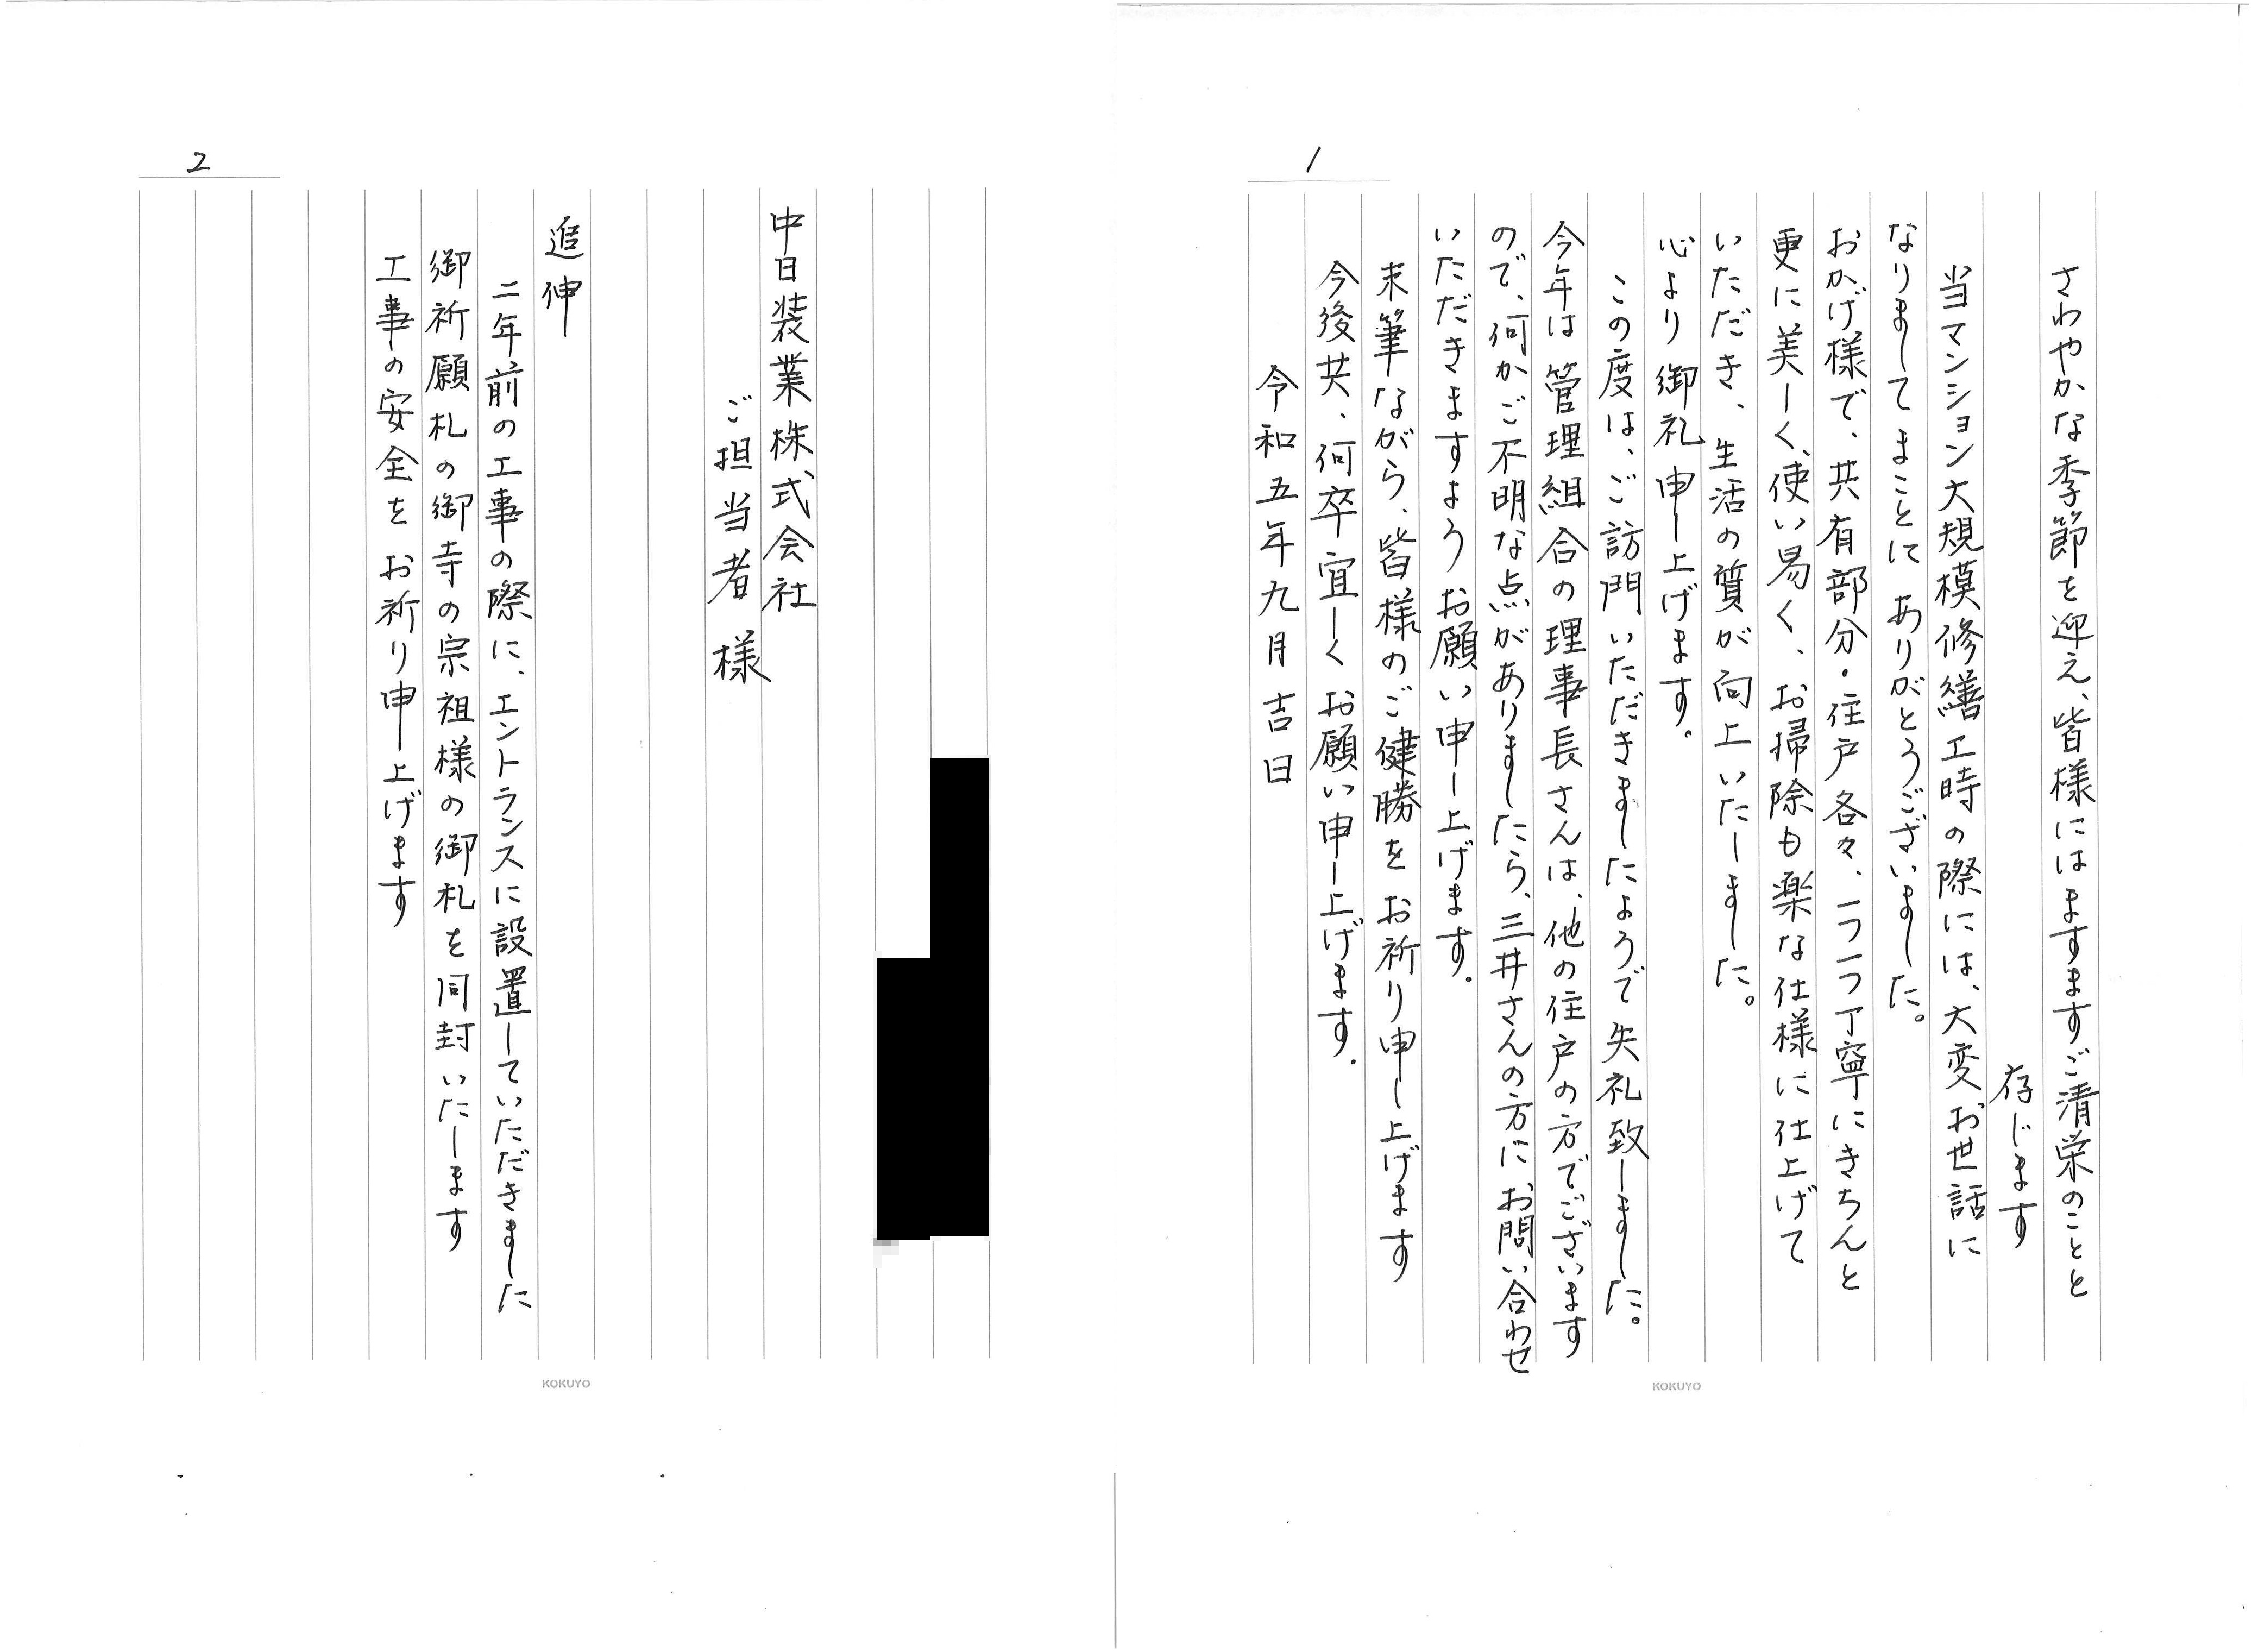 1
さわやかな季節を迎え、皆様にはますますご清栄のことと
存じます
当マンション大規模修繕工時の際には、大変お世話に
なりましてまことにありがとうございました。
おかげ様で、共有部分・住戸各々、一つ一つ丁寧にきちんと
更に美しく、使い易く、お掃除も楽な仕様に仕上げて
いただき、生活の質が向上いたしました。
心より御礼申し上げます。
この度は、ご訪問いただきましたようで失礼致しました。
今年は管理組合の理事長さんは、他の住戸の方でございます
ので、何かご不明な点がありましたら、三井さんの方にお問い合わせ
いただきますようお願い申し上げます。
末筆ながら、皆様のご健勝をお祈り申し上げます
今後共、何卒宜しくお願い申し上げます。
令和五年九月吉日
KOKUYO
2
中日装業株式会社
ご担当者様
追伸
二年前の工事の際に、エントランスに設置していただきました
御祈願札の御寺の宗祖様の御札を同封いたします
工事の安全をお祈り申し上げます
KOKUYO